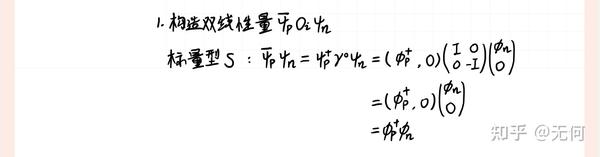 1. 构造双线性量 ψ̄ₚOᵢψₙ
标量型S : ψ̄ₚψₙ = ψₚ⁺γ⁰ψₙ = (ϕₚ⁺, 0)(I 0 0 -I)(ϕₙ 0)
= (ϕₚ⁺, 0)(ϕₙ 0)
= ϕₚ⁺ϕₙ
知乎 @无何